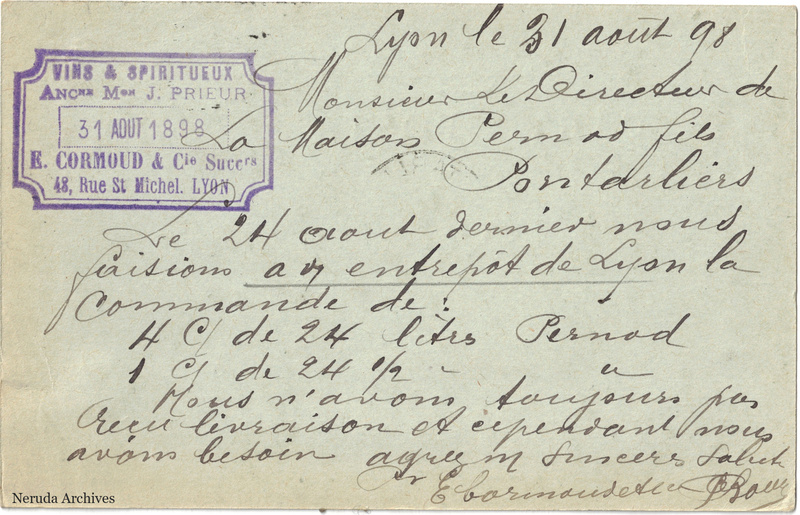 Lyon le 31 août 98
VINS & SPIRITUEUX
ANCNE MON J. PRIEUR
31 AOUT 1898
E. CORMOUD & Cie Succrs
48, Rue St Michel. LYON
Monsieur Le Directeur de
La Maison Pernod fils
Pontarliers
Le 24 aout dernier nous
faisions a entrepôt de Lyon la
commande de :
4 C/ de 24 litrs Pernod
1 C/ de 24 1/2 - "
Nous n'avons toujours pas
recu livraison et cependant nous
avons besoin agree m sincers salut
Pr E Cormoud et Cie
Neruda Archives